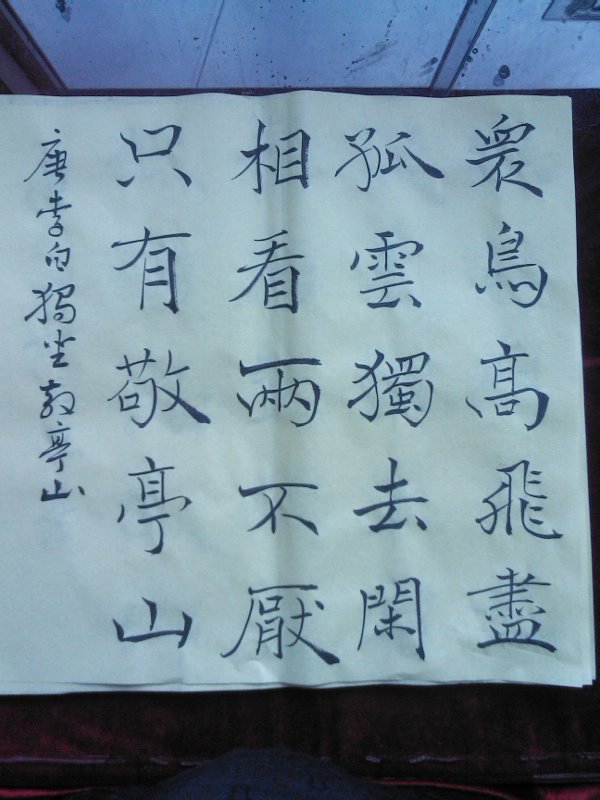 眾鳥高飛盡
孤雲獨去閑
相看兩不厭
只有敬亭山
唐李白獨坐敬亭山